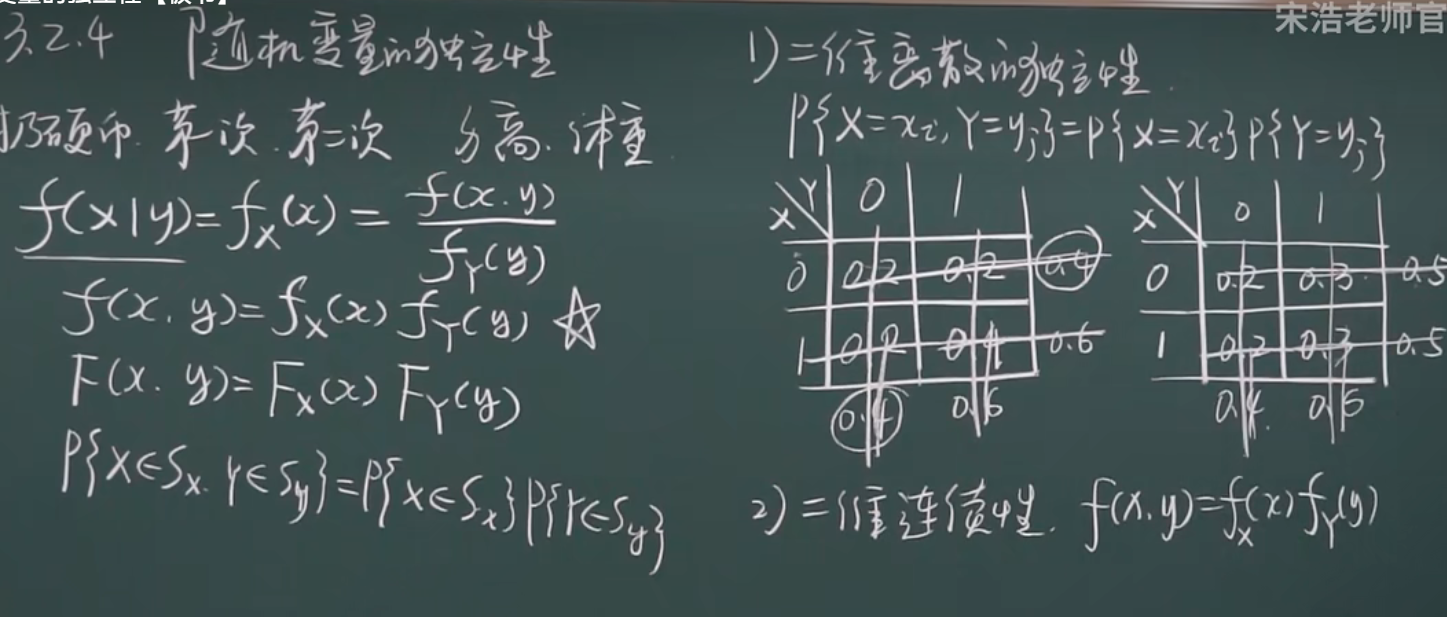 宋浩老师官
3.2.4 随机变量的独立性
扔硬币. 第一次. 第二次 身高. 体重.
f(x|y)=f_X(x)=f(x.y)/f_Y(y)
f(x. y)=f_X(x) f_Y(y) ☆
F(x. y)=F_X(x) F_Y(y)
P{X∈S_x. Y∈S_y}=P{X∈S_x}P{Y∈S_y}
1) 二维离散的独立性.
P{X=x_i, Y=y_j}=P{X=x_i}P{Y=y_j}
X Y 0 1
0 0.2 0.2 0.4
1 0.2 0.4 0.6
0.4 0.6
X Y 0 1
0 0.2 0.3 0.5
1 0.2 0.3 0.5
0.4 0.6
2) 二维连续性. f(x.y)=f_X(x)f_Y(y)